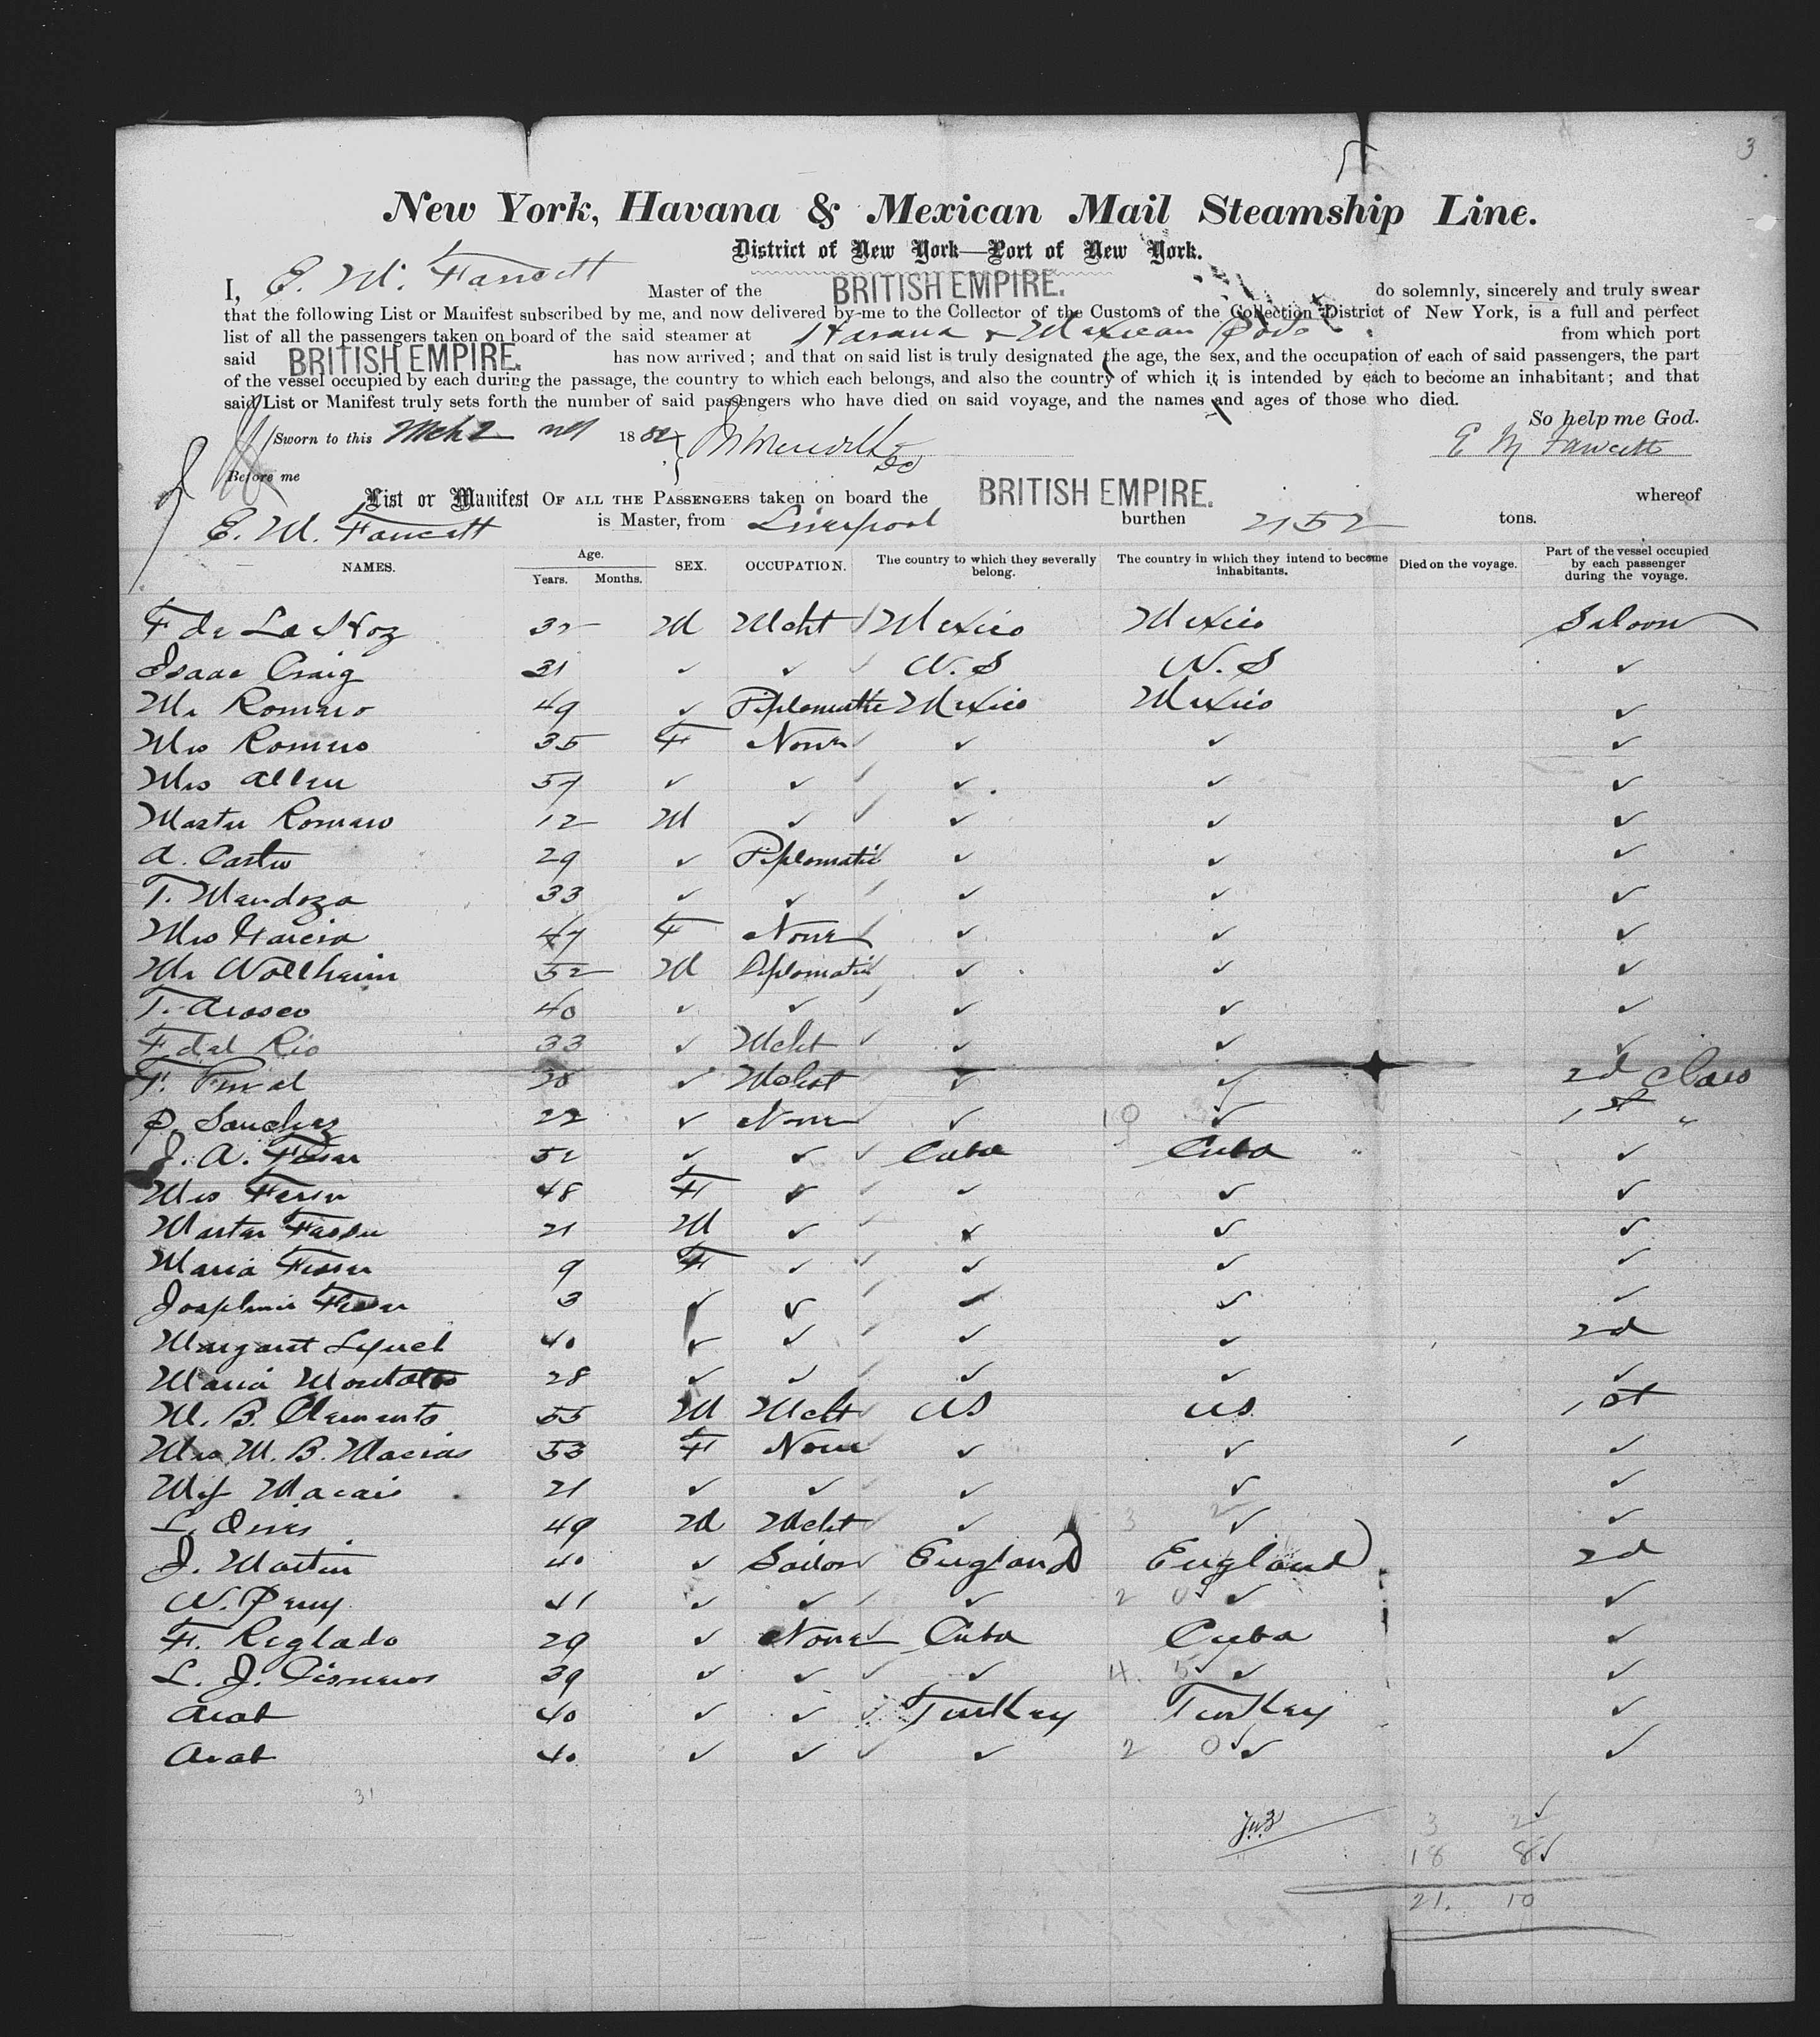 3
New York, Havana & Mexican Mail Steamship Line.
District of New York—Port of New York.
I, E. M. Fawcett Master of the BRITISH EMPIRE. do solemnly, sincerely and truly swear
that the following List or Manifest subscribed by me, and now delivered by me to the Collector of the Customs of the Collection District of New York, is a full and perfect
list of all the passengers taken on board of the said steamer at Havana & Mexican Ports from which port
said BRITISH EMPIRE. has now arrived; and that on said list is truly designated the age, the sex, and the occupation of each of said passengers, the part
of the vessel occupied by each during the passage, the country to which each belongs, and also the country of which it is intended by each to become an inhabitant; and that
said List or Manifest truly sets forth the number of said passengers who have died on said voyage, and the names and ages of those who died.
So help me God.
Sworn to this Mch 2 1882 E M Fawcett
Before me
List or Manifest OF ALL THE PASSENGERS taken on board the BRITISH EMPIRE. whereof
E. M. Fawcett is Master, from Liverpool burthen 2152 tons.
NAMES. Age. Years. Months. SEX. OCCUPATION. The country to which they severally belong. The country in which they intend to become inhabitants. Died on the voyage. Part of the vessel occupied by each passenger during the voyage.
F de La Hoz 32 M Mcht Mexico Mexico Saloon
Isaac Craig 31 ✓ ✓ U.S U.S ✓
Mr Romero 49 ✓ Diplomatic Mexico Mexico ✓
Mrs Romero 35 F None ✓ ✓ ✓
Mrs Allen 57 ✓ ✓ ✓ ✓ ✓
Master Romero 12 M ✓ ✓ ✓ ✓
A. Castro 29 ✓ Diplomatic ✓ ✓ ✓
T. Mendoza 33 ✓ ✓ ✓ ✓ ✓
Mrs Garcia 47 F None ✓ ✓ ✓
Mr Wollheim 52 M Diplomatic ✓ ✓ ✓
T. Orosco 40 ✓ ✓ ✓ ✓ ✓
F. del Rio 33 ✓ Mcht ✓ ✓ ✓
F. ✓ Mcht ✓ ✓ 2d Class
P. Sanchez 22 ✓ None ✓ 10 ✓ 1st "
J. A. Fesser 52 ✓ ✓ Cuba Cuba ✓
Mrs Fesser 48 F ✓ ✓ ✓ ✓
Master Fesser 21 M ✓ ✓ ✓ ✓
Maria Fesser 9 F ✓ ✓ ✓ ✓
Josephine Fesser 3 ✓ ✓ ✓ ✓ ✓
Margaret Lynch 40 ✓ ✓ ✓ ✓ 2d
Maria Montalvo 28 ✓ ✓ ✓ ✓ ✓
M. B. Clements 55 M Mcht US US 1st
Mrs M. B. Macias 53 F None ✓ ✓ ✓
Miss Macais 21 ✓ ✓ ✓ ✓ ✓
L. 49 M Mcht ✓ 3 2 ✓ ✓
J. Martin 40 ✓ Sailor England England 2d
W. Perry 41 ✓ ✓ ✓ 2 0 ✓ ✓
F. Reglado 29 ✓ None Cuba Cuba ✓
L. J. Cisneros 39 ✓ ✓ ✓ 4 5 ✓ ✓
Arab 40 ✓ ✓ Turkey Turkey ✓
Arab 40 ✓ ✓ ✓ 2 0 ✓ ✓
31
3 2 ✓
18 8 ✓
21. 10